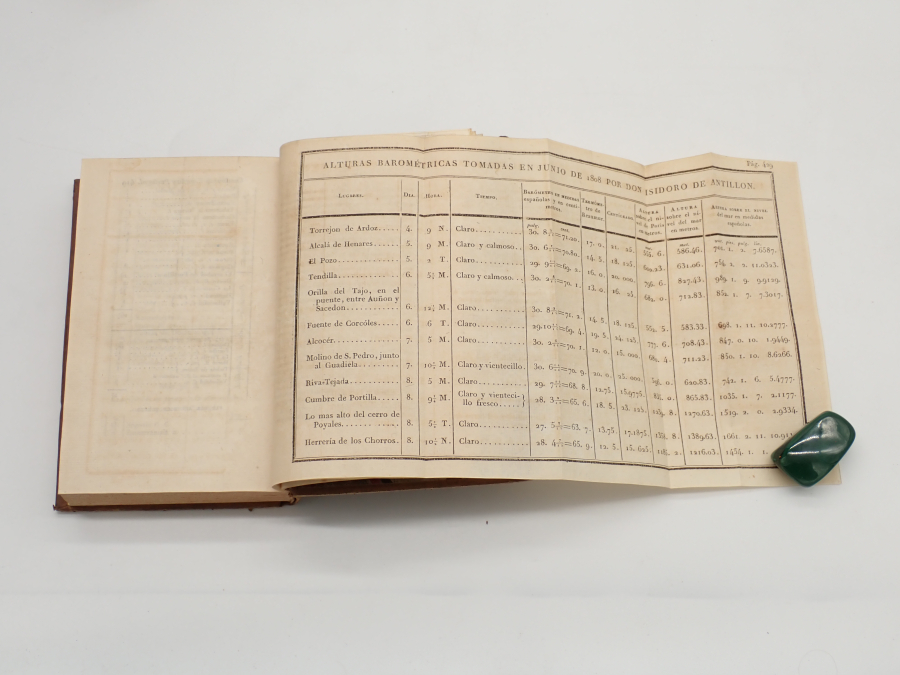 Pág. 419
ALTURAS BAROMÉTRICAS TOMADAS EN JUNIO DE 1808 POR DON ISIDORO DE ANTILLON.
LUGARES. DIA. HORA. TIEMPO. BARÓMETRO EN MEDIDAS españolas y en centímetros. TERMÓMETRO de REAUMUR. CENTÍGRADO. ALTURA sobre el nivel de París en metros. ALTURA sobre el nivel del mar en metros. ALTURA SOBRE EL NIVEL del mar en medidas españolas.
Torrejon de Ardoz..... 4. 9 N. Claro........... 30. 8 =71.00. 17. 0. 21. 25. 6. 586.46. 7.6587.
Alcalá de Henares..... 5. 9 M. Claro y calmoso... 30. 6 =70.80. 14. 5. 18. 125. 631.06. 11.0323.
El Pozo........... 5. 2 T. Claro........... 29. 9 =69. 2. 16. 0. 20. 000. 6. 827.43. 989. 1. 9. 9.9129.
Tendilla........... 6. 5½ M. Claro y calmoso... 30. 2 =70. 1. 13. 0. 16. 25. 0. 712.83. 1. 7. 7.3017.
Orilla del Tajo, en el
puente, entre Auñon y
Sacedon........... 6. M. Claro........... 30. 8 =71. 2. 14. 5. 18. 125. 5. 583.33. 698. 1. 11. 10.2777.
Fuente de Corcóles..... 6. 6 T. Claro........... 29.10 =69. 4. 19. 5. 24. 125. 6. 708.43. 847. 0. 10. 1.9449.
Alcocér........... 7. 5 M. Claro........... 30. 2 =70. 1. 12. 0. 15. 000. 4. 711.23. 850. 1. 10. 8.6266.
Molino de S. Pedro, junto
al Guadiela......... 7. 10½ M. Claro y vientecillo. 30. 6 =70. 9. 20. 0. 25. 000. 0. 620.83. 742. 1. 6. 5.4777.
Riva-Tejada......... 8. 5 M. Claro........... 29. 7 =68. 8. 12.75. 15.9775. 0. 865.83. 1035. 1. 7. 2.1177.
Cumbre de Portilla..... 8. M. Claro y vientecillo fresco..... 28. 3 =65. 6. 18. 5. 23. 125. 8. 1270.63. 1519. 2. 0. 2.9334.
Lo mas alto del cerro de
Poyales........... 8. T. Claro........... 27. 5 =63. 7. 13.75. 17.1875. 8. 1389.63. 1661. 2. 11.
Herrería de los Chorros. 8. 10½ N. Claro........... 28. 4 =65. 9. 12. 5. 15. 625. 2. 1216.03. 1454. 1. 1.